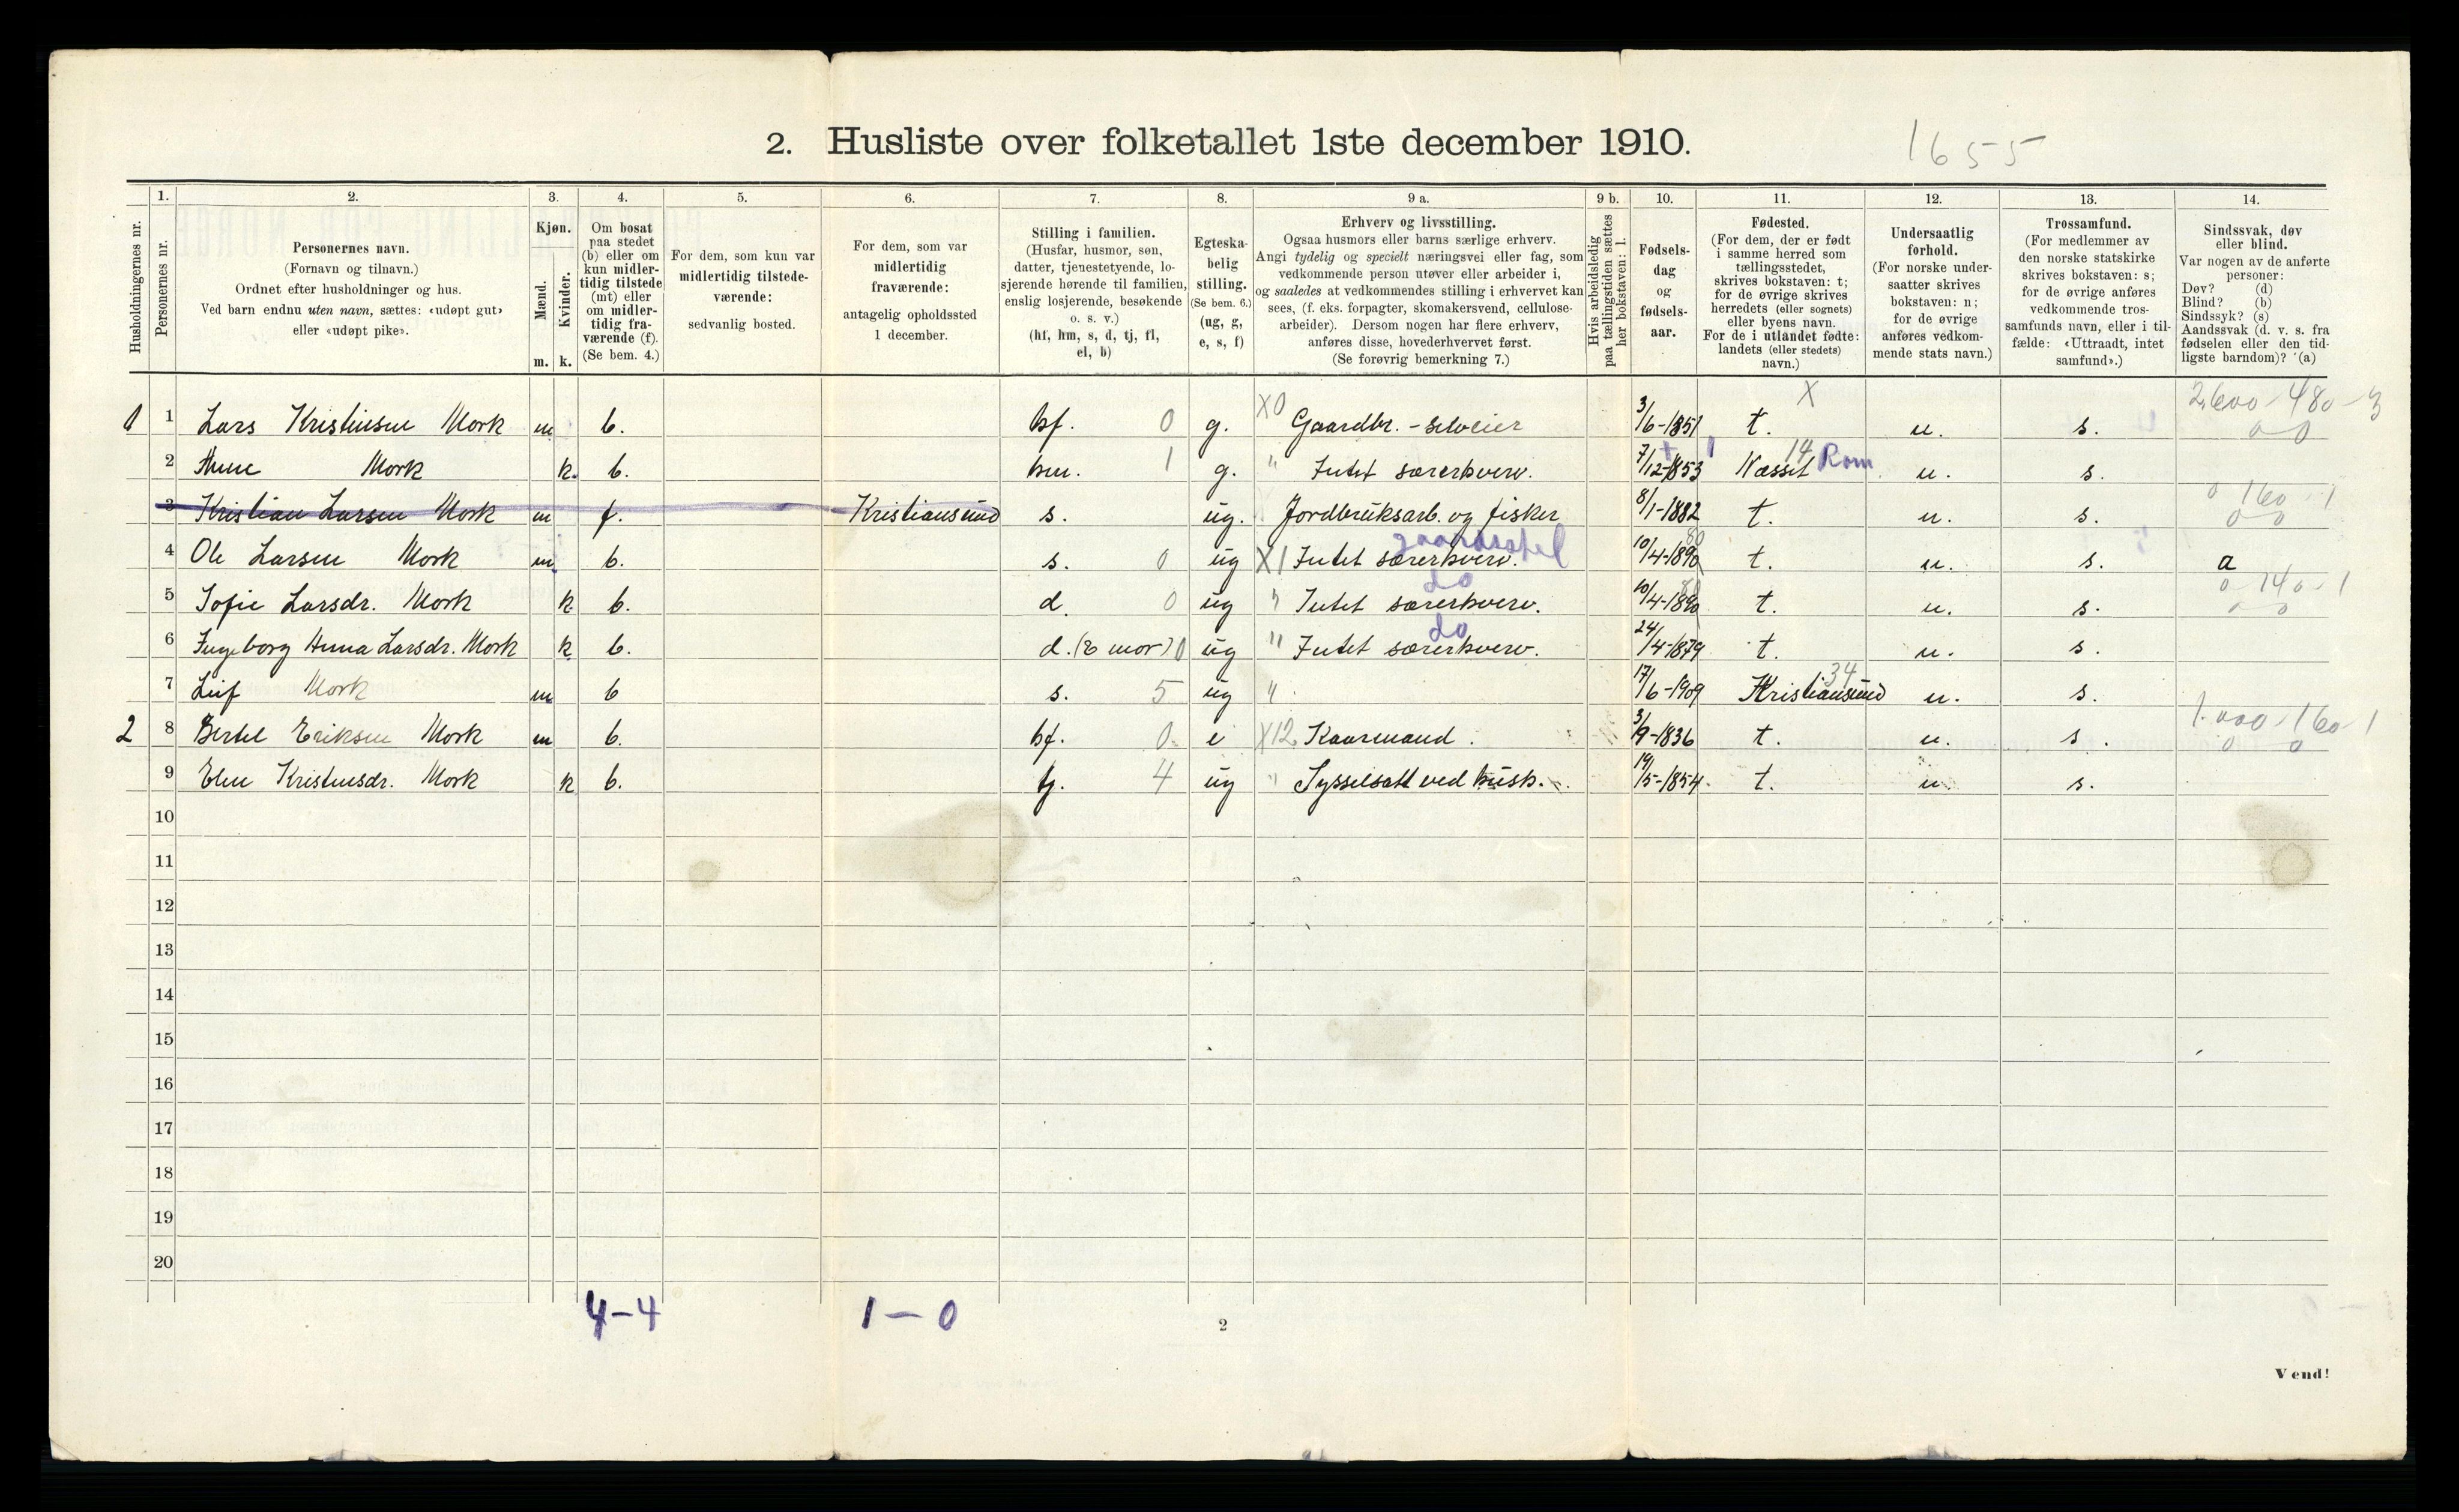 2. Husliste over folketallet 1ste december 1910.
1655
1. 2. 3. 4. 5. 6. 7. 8. 9 a. 9 b. 10. 11. 12. 13. 14.
Husholdningernes nr.
Personernes nr.
Personernes navn.
(Fornavn og tilnavn.)
Ordnet efter husholdninger og hus.
Ved barn endnu uten navn, sættes: «udøpt gut»
eller «udøpt pike».
Kjøn.
Mænd.
Kvinder.
m. k.
Om bosat
paa stedet
(b) eller om
kun midler-
tidig tilstede
(mt) eller
om midler-
tidig fra-
værende (f).
(Se bem. 4.)
For dem, som kun var
midlertidig tilstede-
værende:
sedvanlig bosted.
For dem, som var
midlertidig
fraværende:
antagelig opholdssted
1 december.
Stilling i familien.
(Husfar, husmor, søn,
datter, tjenestetyende, lo-
sjerende hørende til familien,
enslig losjerende, besøkende
o. s. v.)
(hf, hm, s, d, tj, fl,
el, b)
Egteska-
belig
stilling.
(Se bem. 6.)
(ug, g,
e, s, f)
Erhverv og livsstilling.
Ogsaa husmors eller barns særlige erhverv.
Angi tydelig og specielt næringsvei eller fag, som
vedkommende person utøver eller arbeider i,
og saaledes at vedkommendes stilling i erhvervet kan
sees, (f. eks. forpagter, skomakersvend, cellulose-
arbeider). Dersom nogen har flere erhverv,
anføres disse, hovederhvervet først.
(Se forøvrig bemerkning 7.)
Hvis arbeidsledig
paa tællingstiden sættes
her bokstaven: l.
Fødsels-
dag
og
fødsels-
aar.
Fødested.
(For dem, der er født
i samme herred som
tællingsstedet,
skrives bokstaven: t;
for de øvrige skrives
herredets (eller sognets)
eller byens navn.
For de i utlandet fødte:
landets (eller stedets)
navn.)
Undersaatlig
forhold.
(For norske under-
saatter skrives
bokstaven: n;
for de øvrige
anføres vedkom-
mende stats navn.)
Trossamfund.
(For medlemmer av
den norske statskirke
skrives bokstaven: s;
for de øvrige anføres
vedkommende tros-
samfunds navn, eller i til-
fælde: «Uttraadt, intet
samfund».)
Sindssvak, døv
eller blind.
Var nogen av de anførte
personer:
Døv? (d)
Blind? (b)
Sindssyk? (s)
Aandssvak (d. v. s. fra
fødselen eller den tid-
ligste barndom)? (a)
X 2600-480-3
1 1 Lars Kristensen Mork m b. hf. 0 g. X0 Gaardbr. - selveier 3/6-1851 t. n. s. 0 0
2 Anne Mork k. b. hm. 1 g. " Intet særerhverv. 7/12-1853 Næsset 14 Rom n. s.
3 Kristian Larsen Mork m f. Kristiansund s. ug. Jordbruksarb. og fisker 8/1-1882 t. n. s. 0 160-1 0 0
gaardsstel
4 Ole Larsen Mork m b. s. 0 ug X1 Intet særerhverv. 10/4-1890 80 t. n. s. a
do
5 Sofie Larsdr. Mork k b. d. 0 ug " Intet særerhverv. 10/4-1890 80 t. n. s. 0 140-1 0 0
do
6 Ingeborg Anna Larsdr. Mork k b. d. (& mor) 0 ug " Intet særerhverv. 24/4-1879 t. n. s.
7 Leif Mork m b s. 5 ug " 17/6-1909 Kristiansund 34 n. s.
2 8 Bertel Eriksen Mork m b. hf. 0 e X12 Kaarmand. 3/9-1836 t. n. s. 1.000-160-1 0 0
9 Elen Kristensdr. Mork k b. tj. 4 ug " Sysselsatt ved hush. 19/5-1854 t. n. s.
10
11
12
13
14
15
16
17
18
19
20
4-4 1-0
2
Vend!